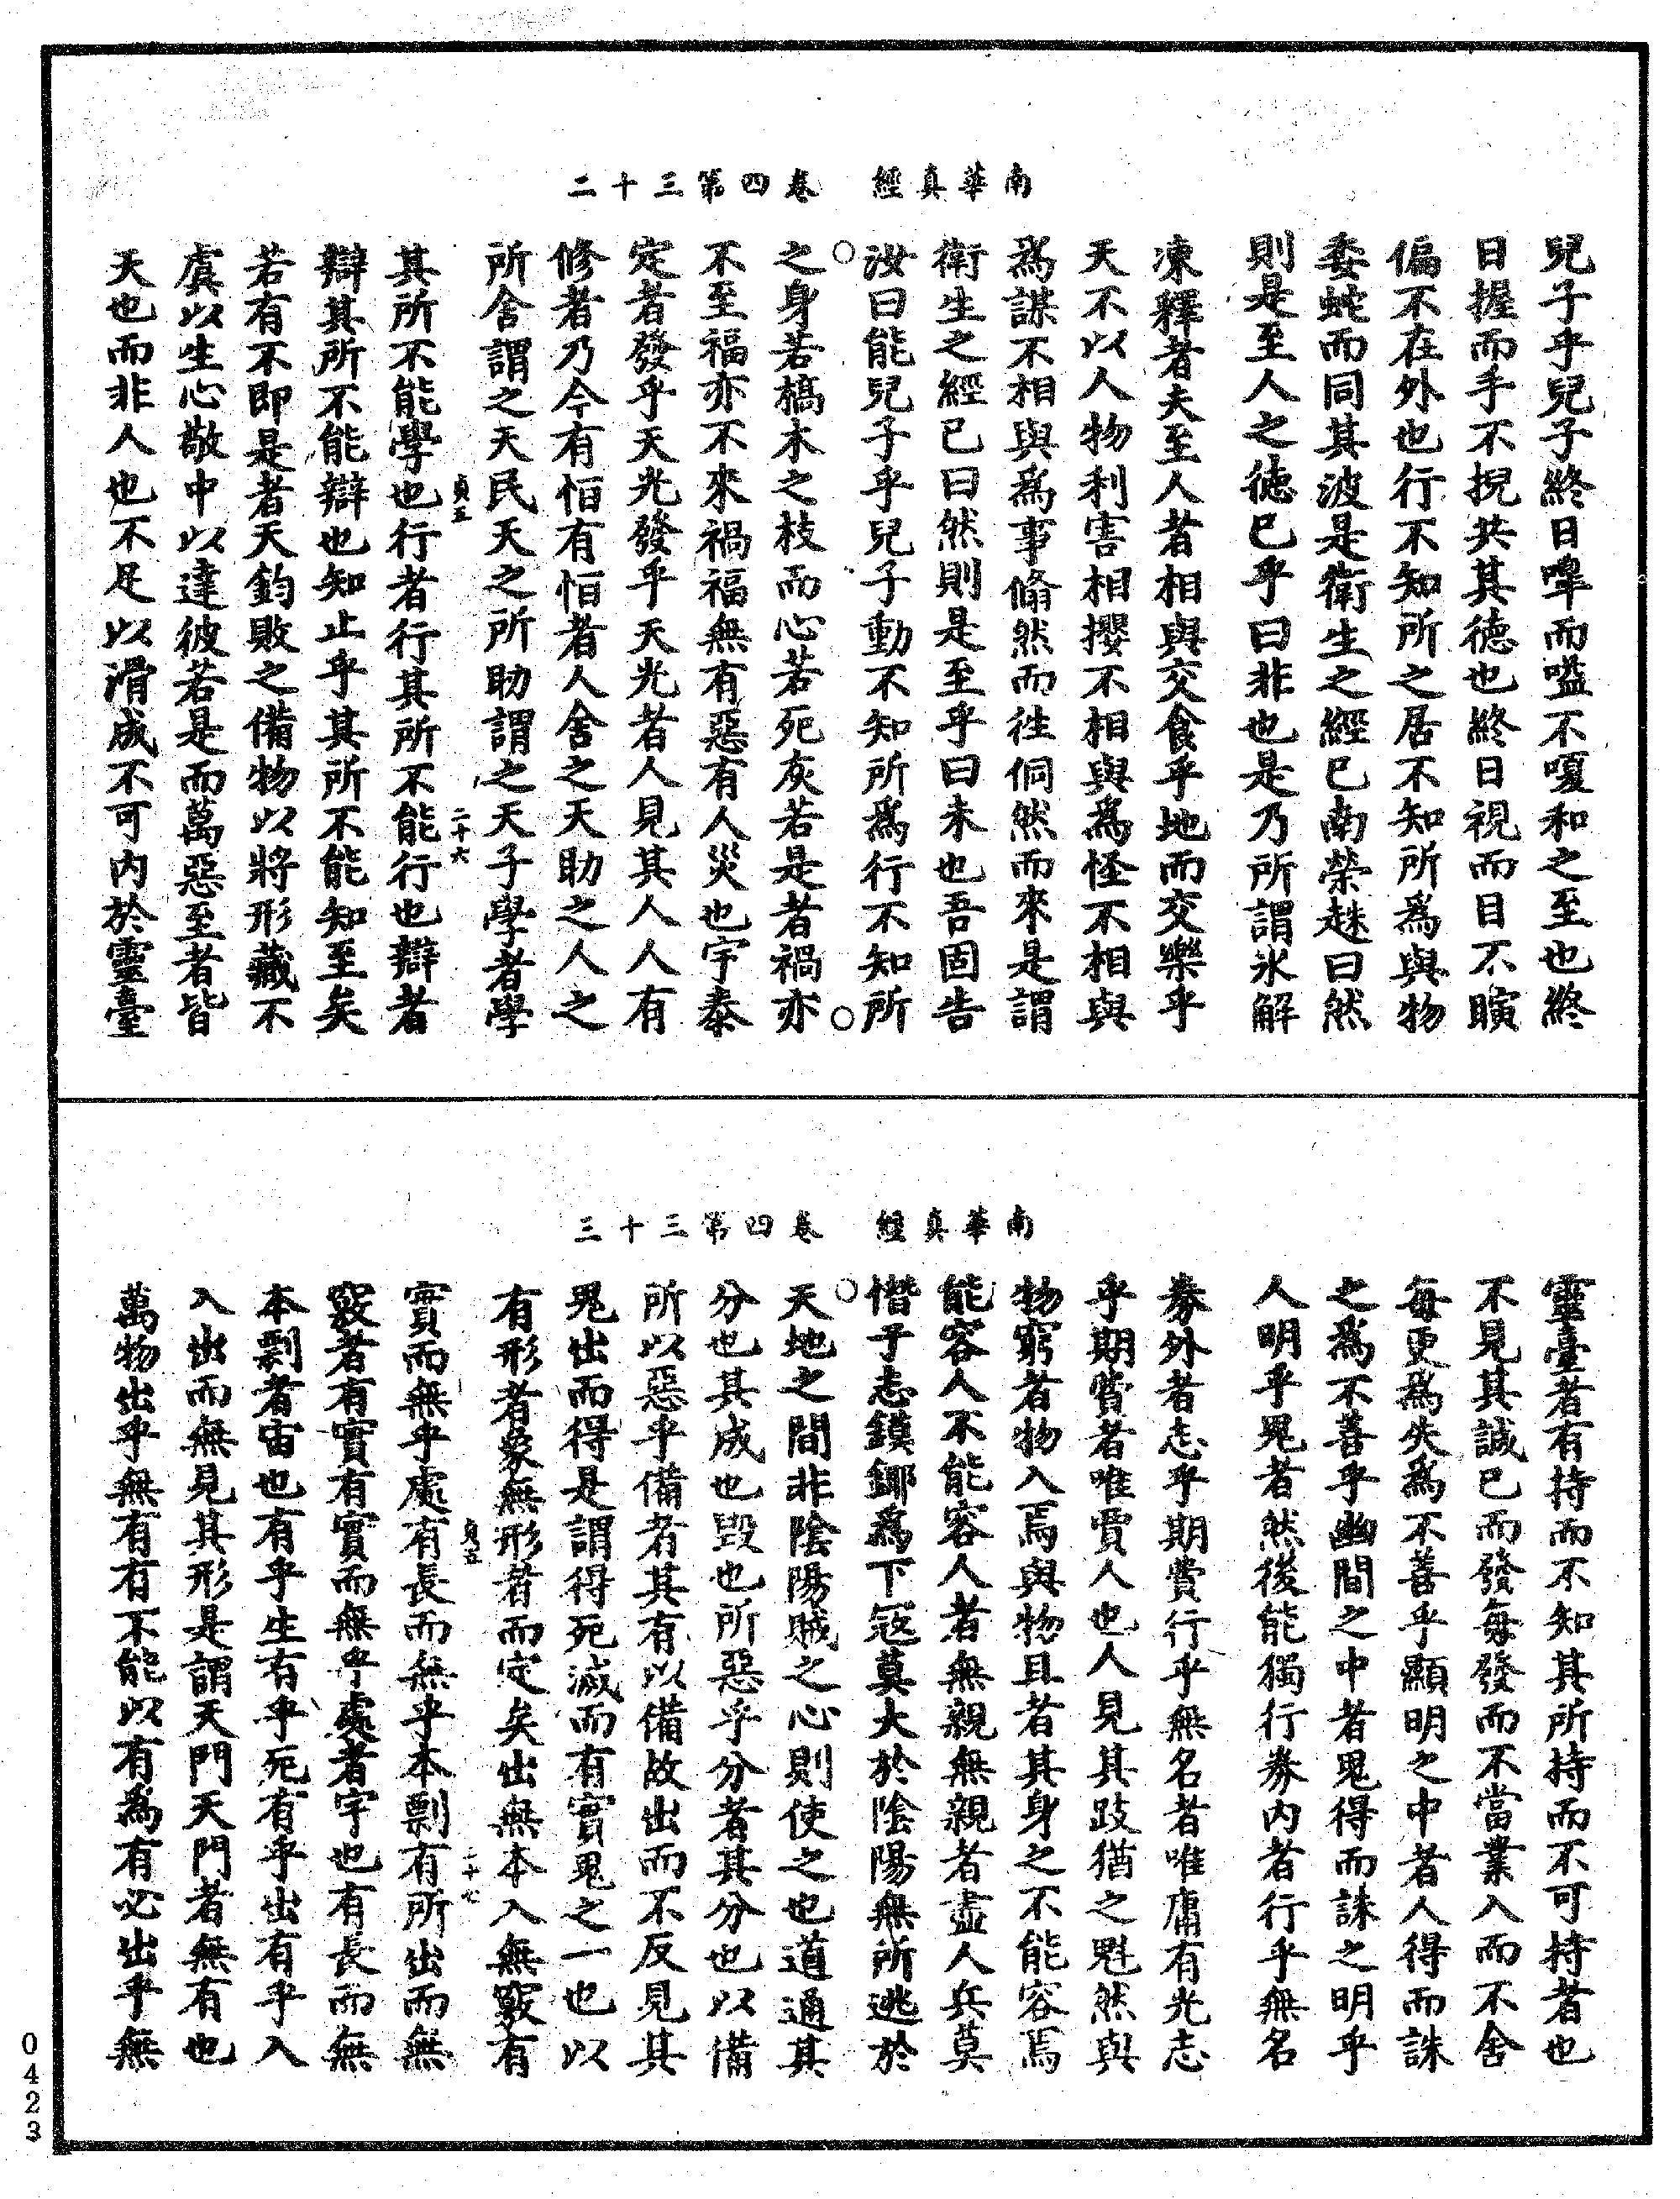 南華真經　卷四第三十二
兒子乎兒子終日嘷而嗌不嗄和之至也終
日握而手不掜共其德也終日視而目不瞚
偏不在外也行不知所之居不知所為與物
委蛇而同其波是衛生之經已南榮趎曰然
則是至人之德已乎曰非也是乃所謂氷解
凍釋者夫至人者相與交食乎地而交樂乎
天不以人物利害相攖不相與為怪不相與
為謀不相與為事翛然而往侗然而來是謂
衛生之經已曰然則是至乎曰未也吾固告
汝曰能兒子乎兒子動不知所為行不知所
之身若槁木之枝而心若死灰若是者禍亦
不至福亦不來禍福無有惡有人災也宇泰
定者發乎天光發乎天光者人見其人人有
修者乃今有恒有恒者人舍之天助之人之
所舍謂之天民天之所助謂之天子學者學
貞五　二十六
其所不能學也行者行其所不能行也辯者
辯其所不能辯也知止乎其所不能知至矣
若有不即是者天鈞敗之備物以將形藏不
虞以生心敬中以達彼若是而萬惡至者皆
天也而非人也不足以滑成不可內於靈臺
南華真經　卷四第三十三
靈臺者有持而不知其所持而不可持者也
不見其誠已而發每發而不當業入而不舍
每更為失為不善乎顯明之中者人得而誅
之為不善乎幽間之中者鬼得而誅之明乎
人明乎鬼者然後能獨行券內者行乎無名
券外者志乎期費行乎無名者唯庸有光志
乎期費者唯賈人也人見其跂猶之魁然與
物窮者物入焉與物且者其身之不能容焉
能容人不能容人者無親無親者盡人兵莫
憯于志鏌鋣為下寇莫大於陰陽無所逃於
天地之間非陰陽賊之心則使之也道通其
分也其成也毀也所惡乎分者其分也以備
所以惡乎備者其有以備故出而不反見其
鬼出而得是謂得死滅而有實鬼之一也以
有形者象無形者而定矣出無本入無竅有
貞五　二十七
實而無乎處有長而無乎本剽有所出而無
竅者有實有實而無乎處者宇也有長而無
本剽者宙也有乎生有乎死有乎出有乎入
入出而無見其形是謂天門天門者無有也
萬物出乎無有有不能以有為有必出乎無
0423